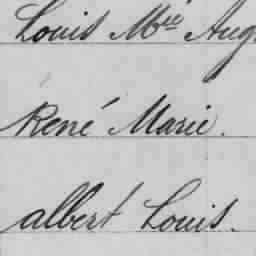 Louis Mie Aug.
René Marie.
albert Louis.